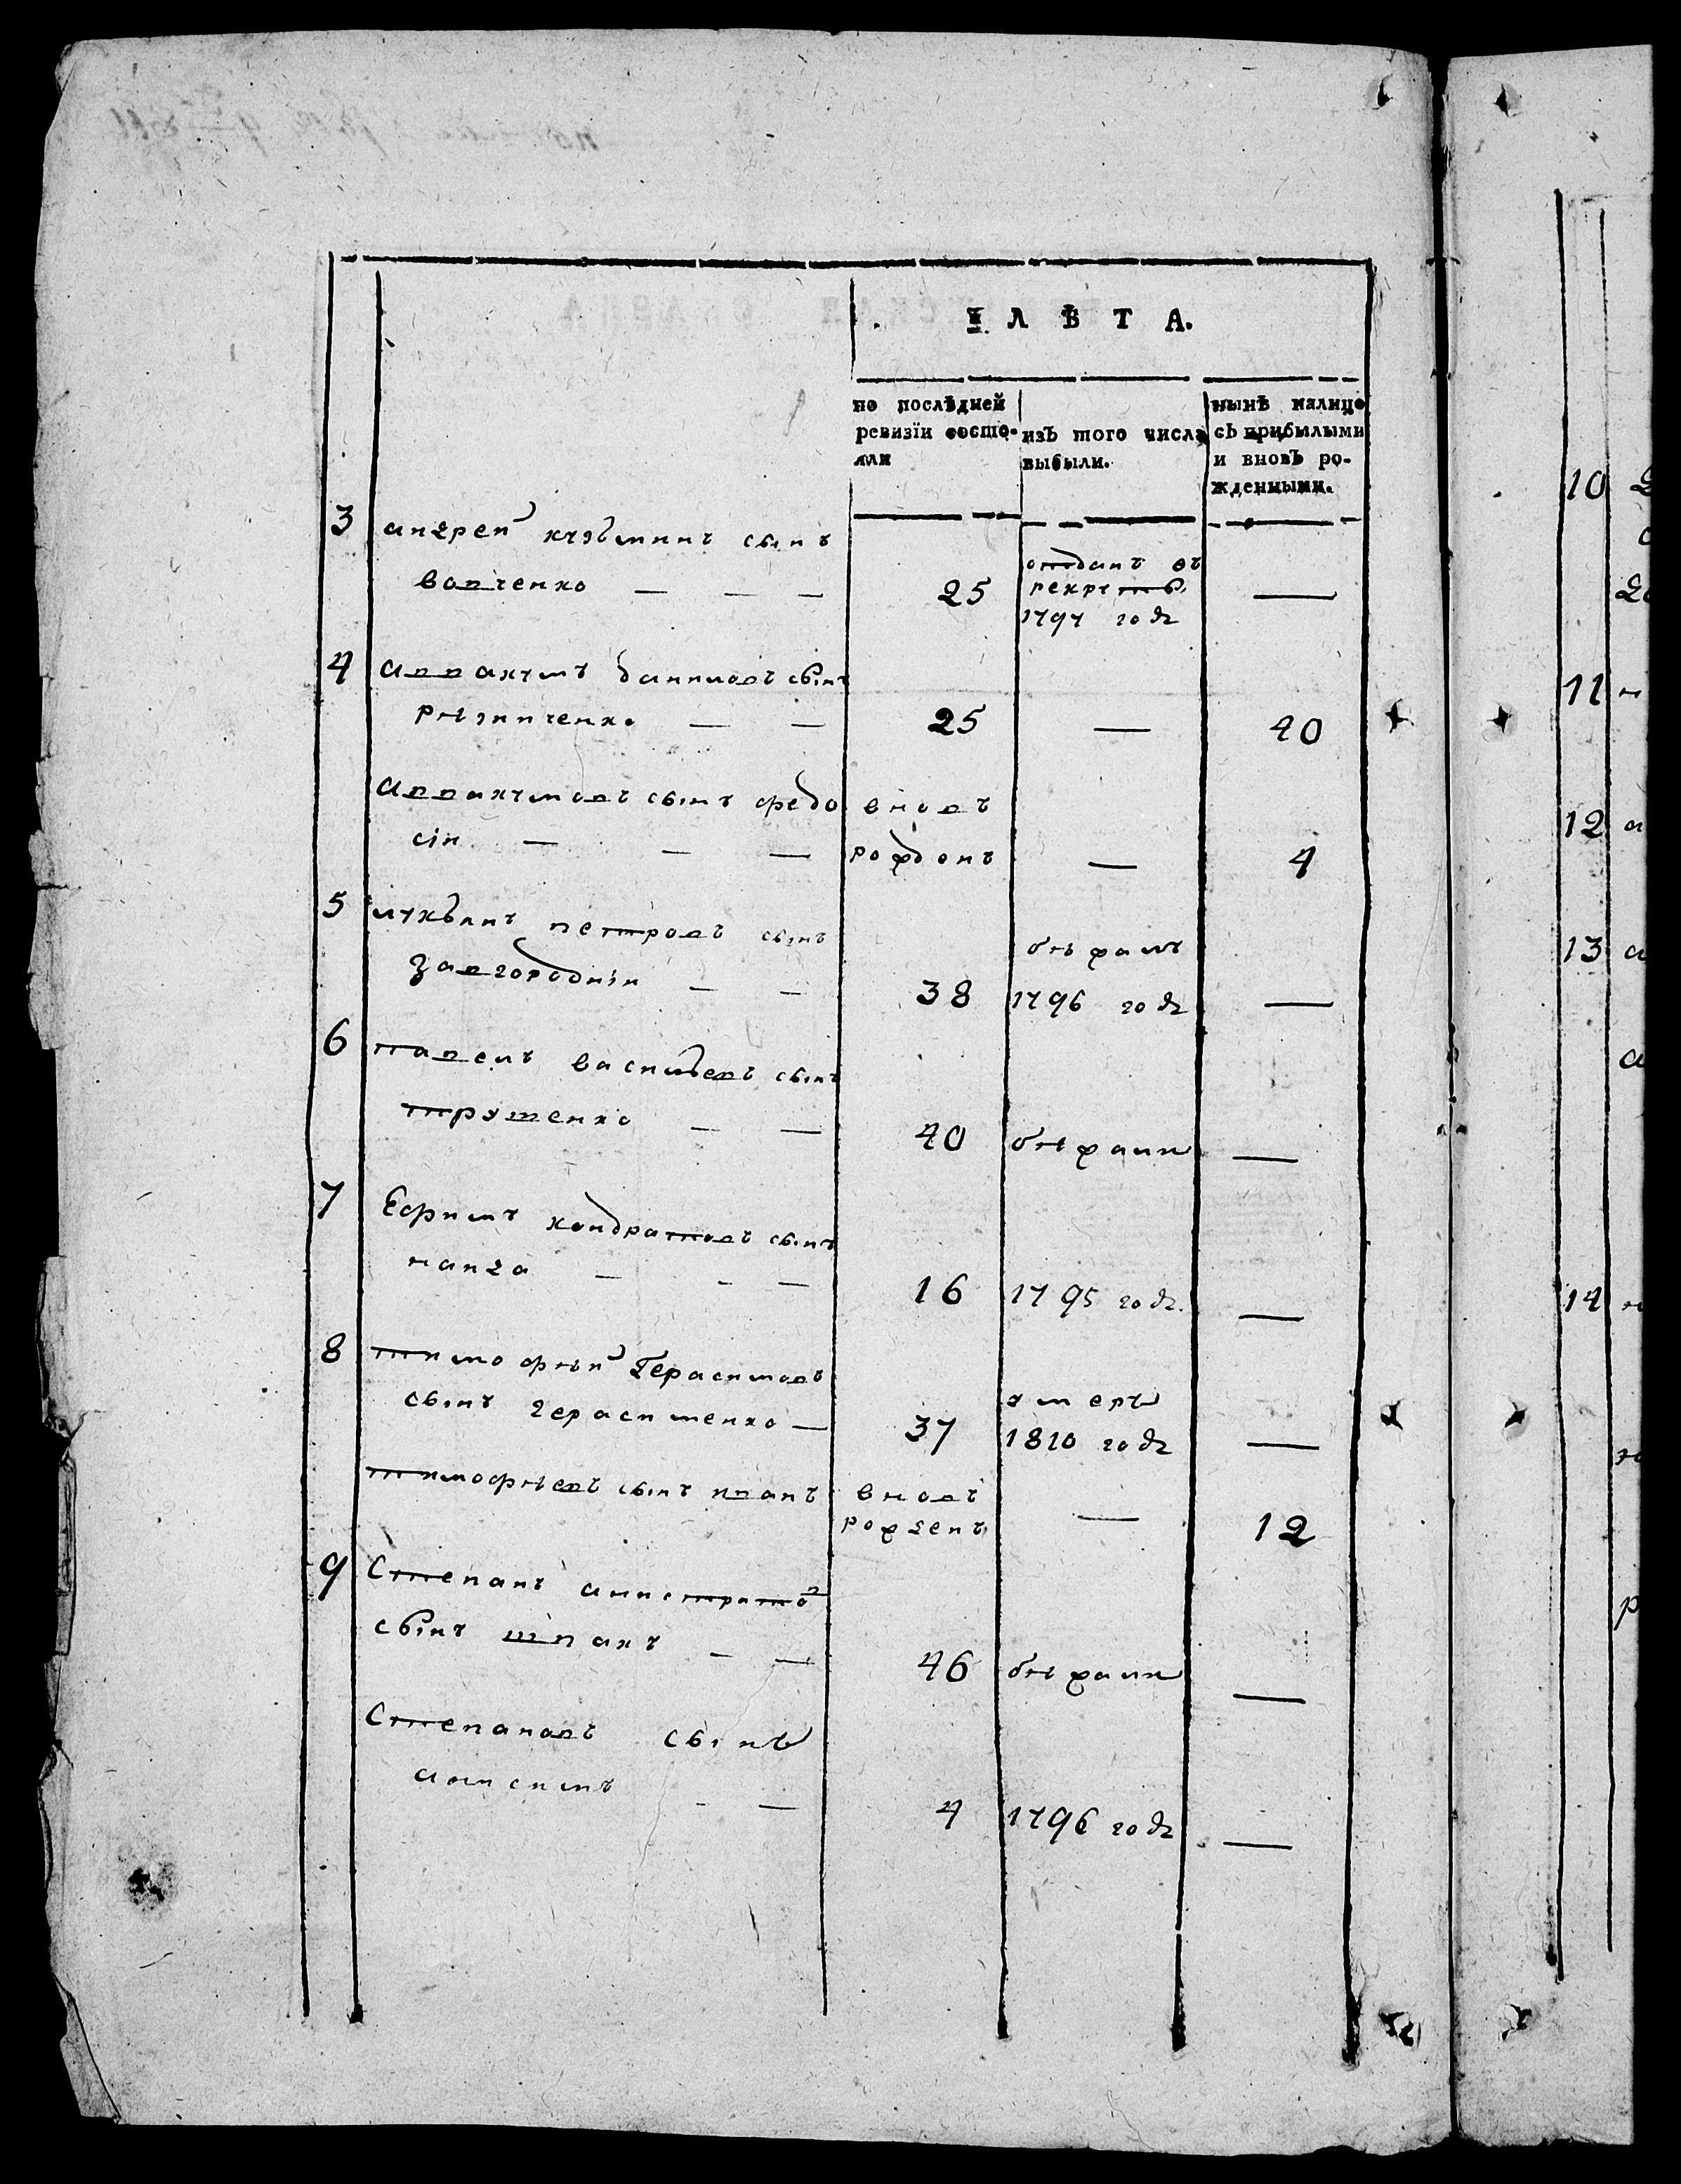 ЛѢТА.
по послѣдней ревизіи состояли
изъ того числа выбыли.
нынѣ налицо съ прибылыми и вновь рожденными.
3 андрей кузьминъ сынъ
вовченко — — — 25 отданъ въ рекруты 1797 году —
4 аввакумъ даниловъ сынъ
рѣзниченко — — 25 — 40
аввакумовъ сынъ федо
сій — — — вновъ рождонъ — 4
5 лукьянъ петровъ сынъ
завгородній — — 38 бѣжалъ 1796 году —
6 павелъ васильевъ сынъ
— — 40 бѣжали —
7 Ефимъ кондратовъ сынъ
— — — 16 1795 году —
8 тимофѣй Герасимовъ
сынъ герасименко — 37 умеръ 1810 году —
тимофѣевъ сынъ иванъ вновъ рожденъ — 12
9 Степанъ
сынъ шпакъ — — 46 бѣжали —
Степановъ сынъ
анисимъ — — 4 1796 году —
10
11
12
13
14